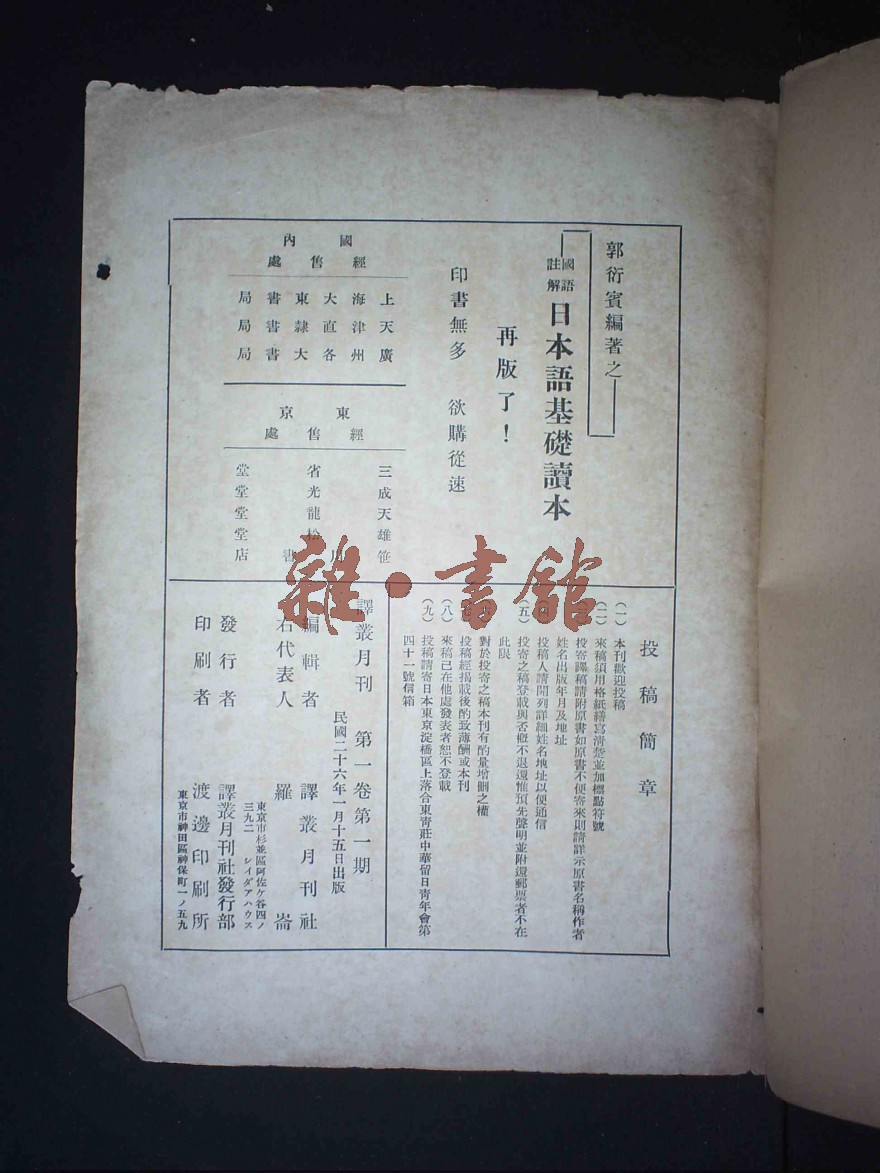 郭衍賓編著之
國語
註解
日本語基礎讀本
再版了!
印書無多　欲購從速
國內
經售處
上海大東書局
天津直隸書局
廣州各大書局
東京
經售處
三省堂
成光堂
天龍堂
雄松堂
笹川書店
投稿簡章
(一)本刊歡迎投稿
(二)來稿須用格紙繕寫清楚並加標點符號
投寄譯稿請附原書如原書不便寄來則請詳示原書名稱作者
姓名出版年月及地址
投稿人請開列詳細姓名地址以便通信
(五)投寄之稿登載與否概不退還惟預先聲明並附還郵票者不在
此限
對於投寄之稿本刊有酌量增刪之權
投稿經揭載後酌致薄酬或本刊
(八)來稿已在他處發表者恕不登載
(九)投稿請寄日本東京淀橋區上落合東靑莊中華留日靑年會第
四十一號信箱
譯叢月刊　第一卷第一期
民國二十六年一月十五日出版
編輯者　譯叢月刊社
右代表人　羅崙
東京市杉並區阿佐ケ谷四ノ
三九二　レイダアハウス
發行者　譯叢月刊社發行部
印刷者　渡邊印刷所
東京市神田區神保町一ノ五九
雜·書館